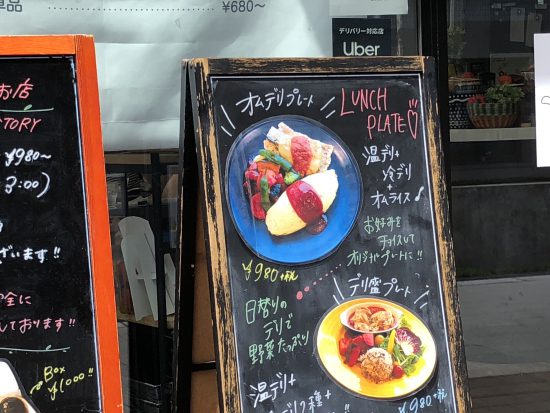 単品
¥680〜
デリバリー対応店
Uber
お店
TORY
¥980〜
3:00)
ざいます!!
全に
しております!!
Box
¥1000!!
オムデリプレート
LUNCH
PLATE
温デリ+
冷デリ
+
オムライス♪
お好みを
チョイスして
オリジナルプレートに!!
¥980+税
日替りの
デリで
野菜たっぷり
デリ盛プレート
温デリ+
デリ2種+
¥980+税